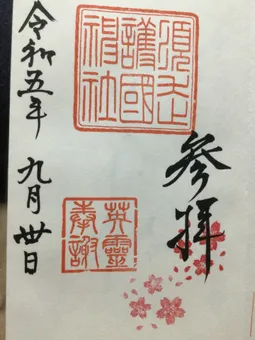 参拝
護國
神社
英靈
奉謝
令和五年 九月 卅日